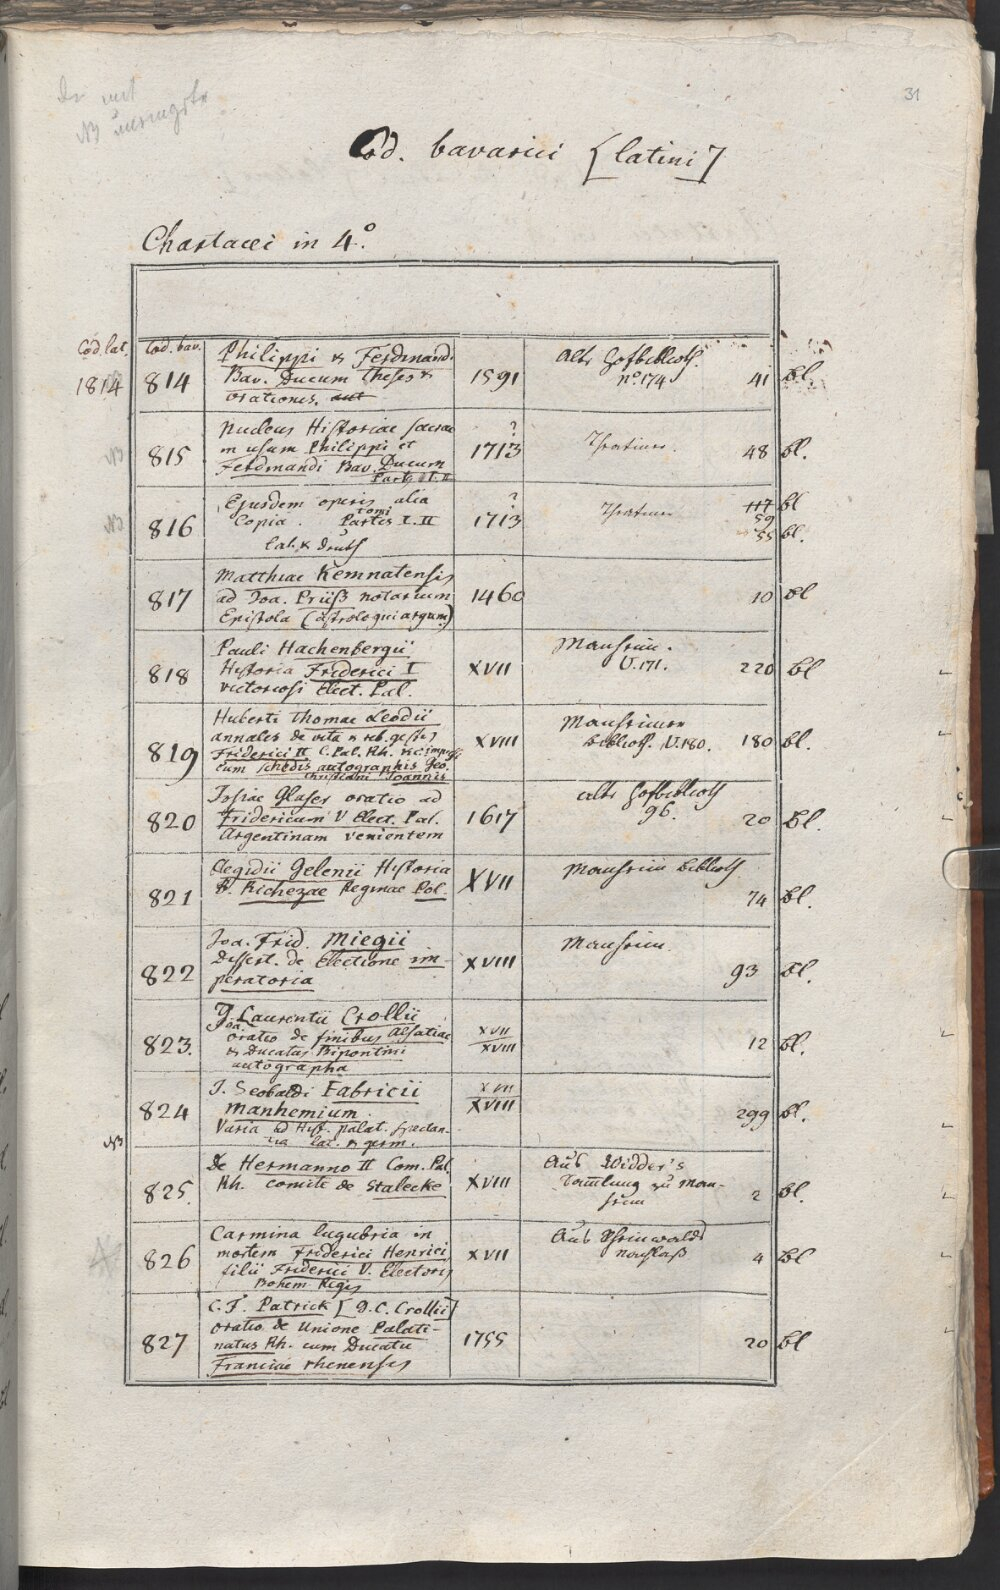 31
NB
Cod. bavarici [latini]
Chartacei in 4.°
Cod. lat. Cod. bav.
1814 814 Philippi & Ferdinandi
Bav. Ducum theses &
orationes. 1591 Alte Hofbiblioth.
n.° 174 41 bl
NB 815 Nucleus Historiae sacrae
in usum Philippi et
Ferdmandi Bav. Ducum
Pars I et. II ? 1713 48 bl.
NB 816 Ejusdem operis alia
Copia. tomi Partis I. II
Lat. & deutsch ? 1713 117 bl
59
55 bl.
817 Matthiae Kemnatensis
ad Joa. Prüß notarium
Epistola (astrologui argum.) 1460 10 bl
818 Pauli Hachenbergii
Historia Friderici I
victoriosi Elect. Pal. XVII Manheim.
V.171. 220 bl
819 Huberti Thomae Leodii
annales de vita & reb. gestis
Friderici II C. Pal. Rh.
cum schedis autographis Geo.
Christiani Joannis XVIII Manheimer
Biblioth. V.180. 180 bl.
820 Josiae Glaser oratio ad
Fridericum V Elect. Pal.
Argentinam venientem 1617 alte Hofbiblioth
96. 20 bl.
821 Aegidii Gelenii Historia
B. Richezae Reginae Pol. XVII Manheim Biblioth
74 bl.
822 Joa. Frid. Miegii
Dissert. de Electione im-
peratoria XVIII Manheim.
93 bl.
823. Laurentii Crollii
oratio de finibus Alsatiae
& Ducatus Bipontini
autographa XVII
XVIII 12 bl.
824 J. Seobaldi Fabricii
Manhemium.
Varia ad Hist. palat. spectan-
tia lat. & germ. XVII
XVIII 299 bl.
NB
825. De Hermanno II Com. Pal.
Rh. comite de Stalecke XVIII Aus Widder's
Samlung zu Man-
heim 2 bl.
826 Carmina lugubria in
mortem Friderici Henrici
filii Friderici V. Electoris
Bohem Regis XVII Aus
nachlaß 4 bl
827 C. F. Patrick [G. C. Crollii]
oratio de Unione Palati-
natus Rh. cum Ducatu
Franciae rhenensis 1755 20 bl